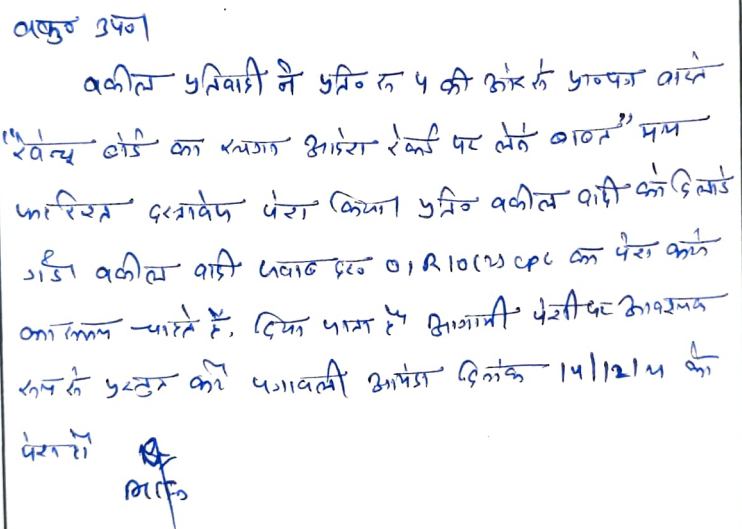 वकुल उप०।
वकील प्रतिवादी ने प्रति० सं 5 की ओर से प्रा०पत्र वास्ते
"रेवेन्यू बोर्ड का स्थगन आदेश रेकर्ड पर लेने बाबत" मय
फारिस्त दस्तावेज पेश किया। प्रति० वकील वादी को दिलाई
गई। वकील वादी जवाब दर० O1R10(2) CPC का पेश करने
का समय चाहते हैं, दिया जाता है आगामी पेशी पर आवश्यक
रूप से प्रस्तुत करें पत्रावली आइंदा दिनांक 14/12/21 को
पेश हो।